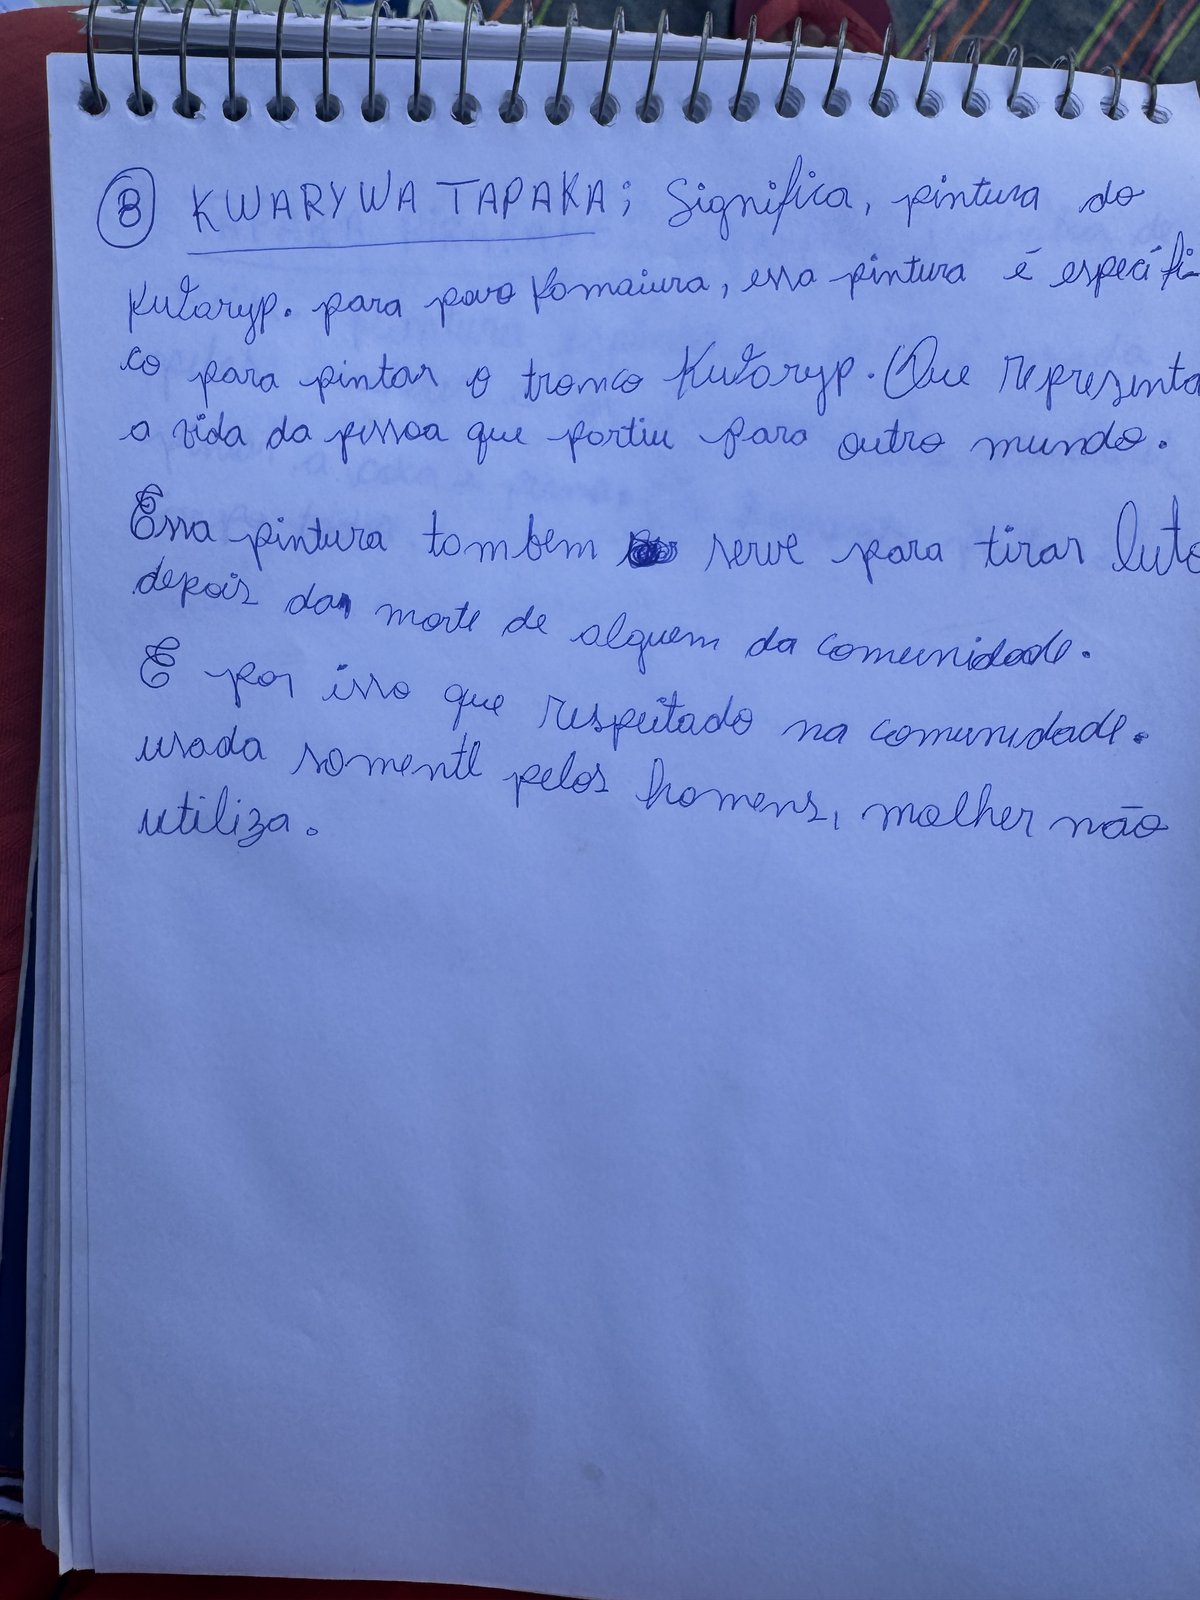 8 KWARYWA TAPAKA; Significa, pintura do
Kuťaryp. para povo Kamaiura, essa pintura é especifi-
co para pintar o tronco Kuťaryp. Que representa
a vida da pessoa que partiu para outro mundo.
Essa pintura tambem serve para tirar luto
depois da morte de alguem da comunidade.
E por isso que respeitado na comunidade.
usada somente pelos homens, molher não
utiliza.